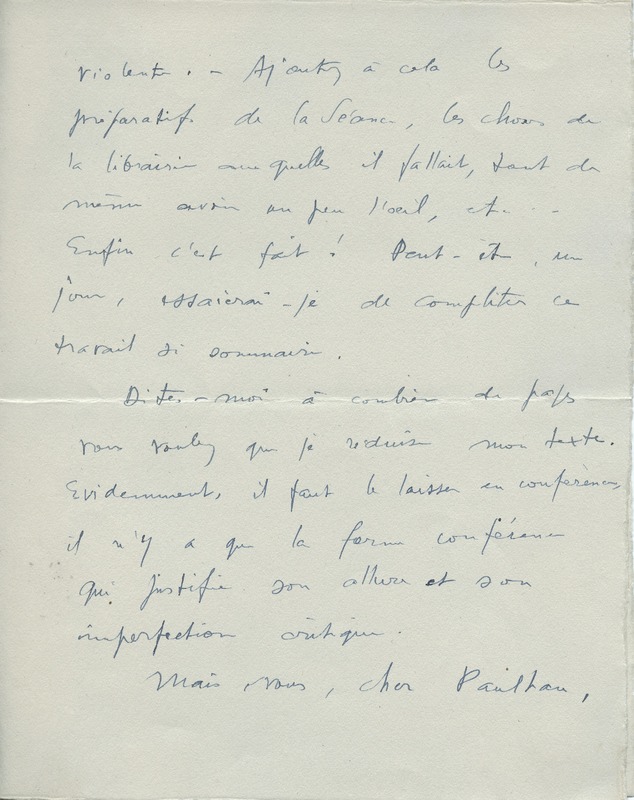 violente. - Ajoutez à cela les
préparatifs de la Séance, les choses de
la librairie auxquelles il fallait, tout de
même avoir un peu l'oeil, etc...
Enfin c'est fait ! Peut-être, un
jour, essaierai-je de compléter ce
travail si sommaire.
Dites-moi à combien de pages
vous voulez que je réduise mon texte.
Evidemment, il faut le laisser en conférence,
il n'y a que la forme conférence
qui justifie son allure et son
imperfection critique.
Mais vous, cher Paulhan,